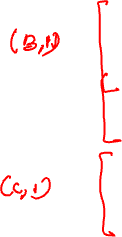 (B,1)
(C,1)